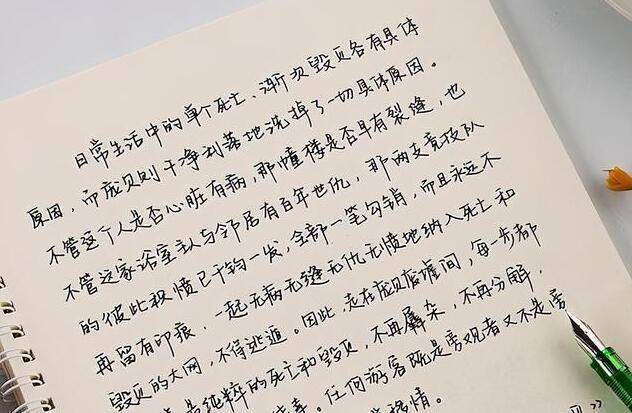 日常生活中的单个死亡、渐次毁灭各有具体
原因,而庞贝则干净利落地洗掉了一切具体原因。
不管这个人是否心脏有病,那幢楼是否早有裂缝,也
不管这家浴室主人与邻居有百年世仇,那两支竞技队
的彼此积愤已千钧一发,全部一笔勾销,而且永远不
再留有叩痕,一起无病无缝无仇无愤地纳入死亡和
毁灭的大网,不得逃遁。因此,走在庞贝废墟间,每一步都
是纯粹的死亡和毁灭,不再羼杂,不再分解,
。任何游客既是旁观者又不是旁
移情。